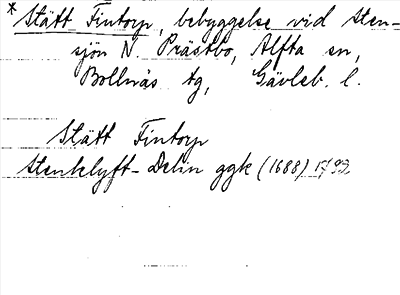 * Stätt Fintorp, bebyggelse vid Sten-
sjön N. Prästbo, Alfta sn,
Bollnäs tg, Gävleb. l.
Stätt Fintorp
Stenklyft-Delin ggk (1688)